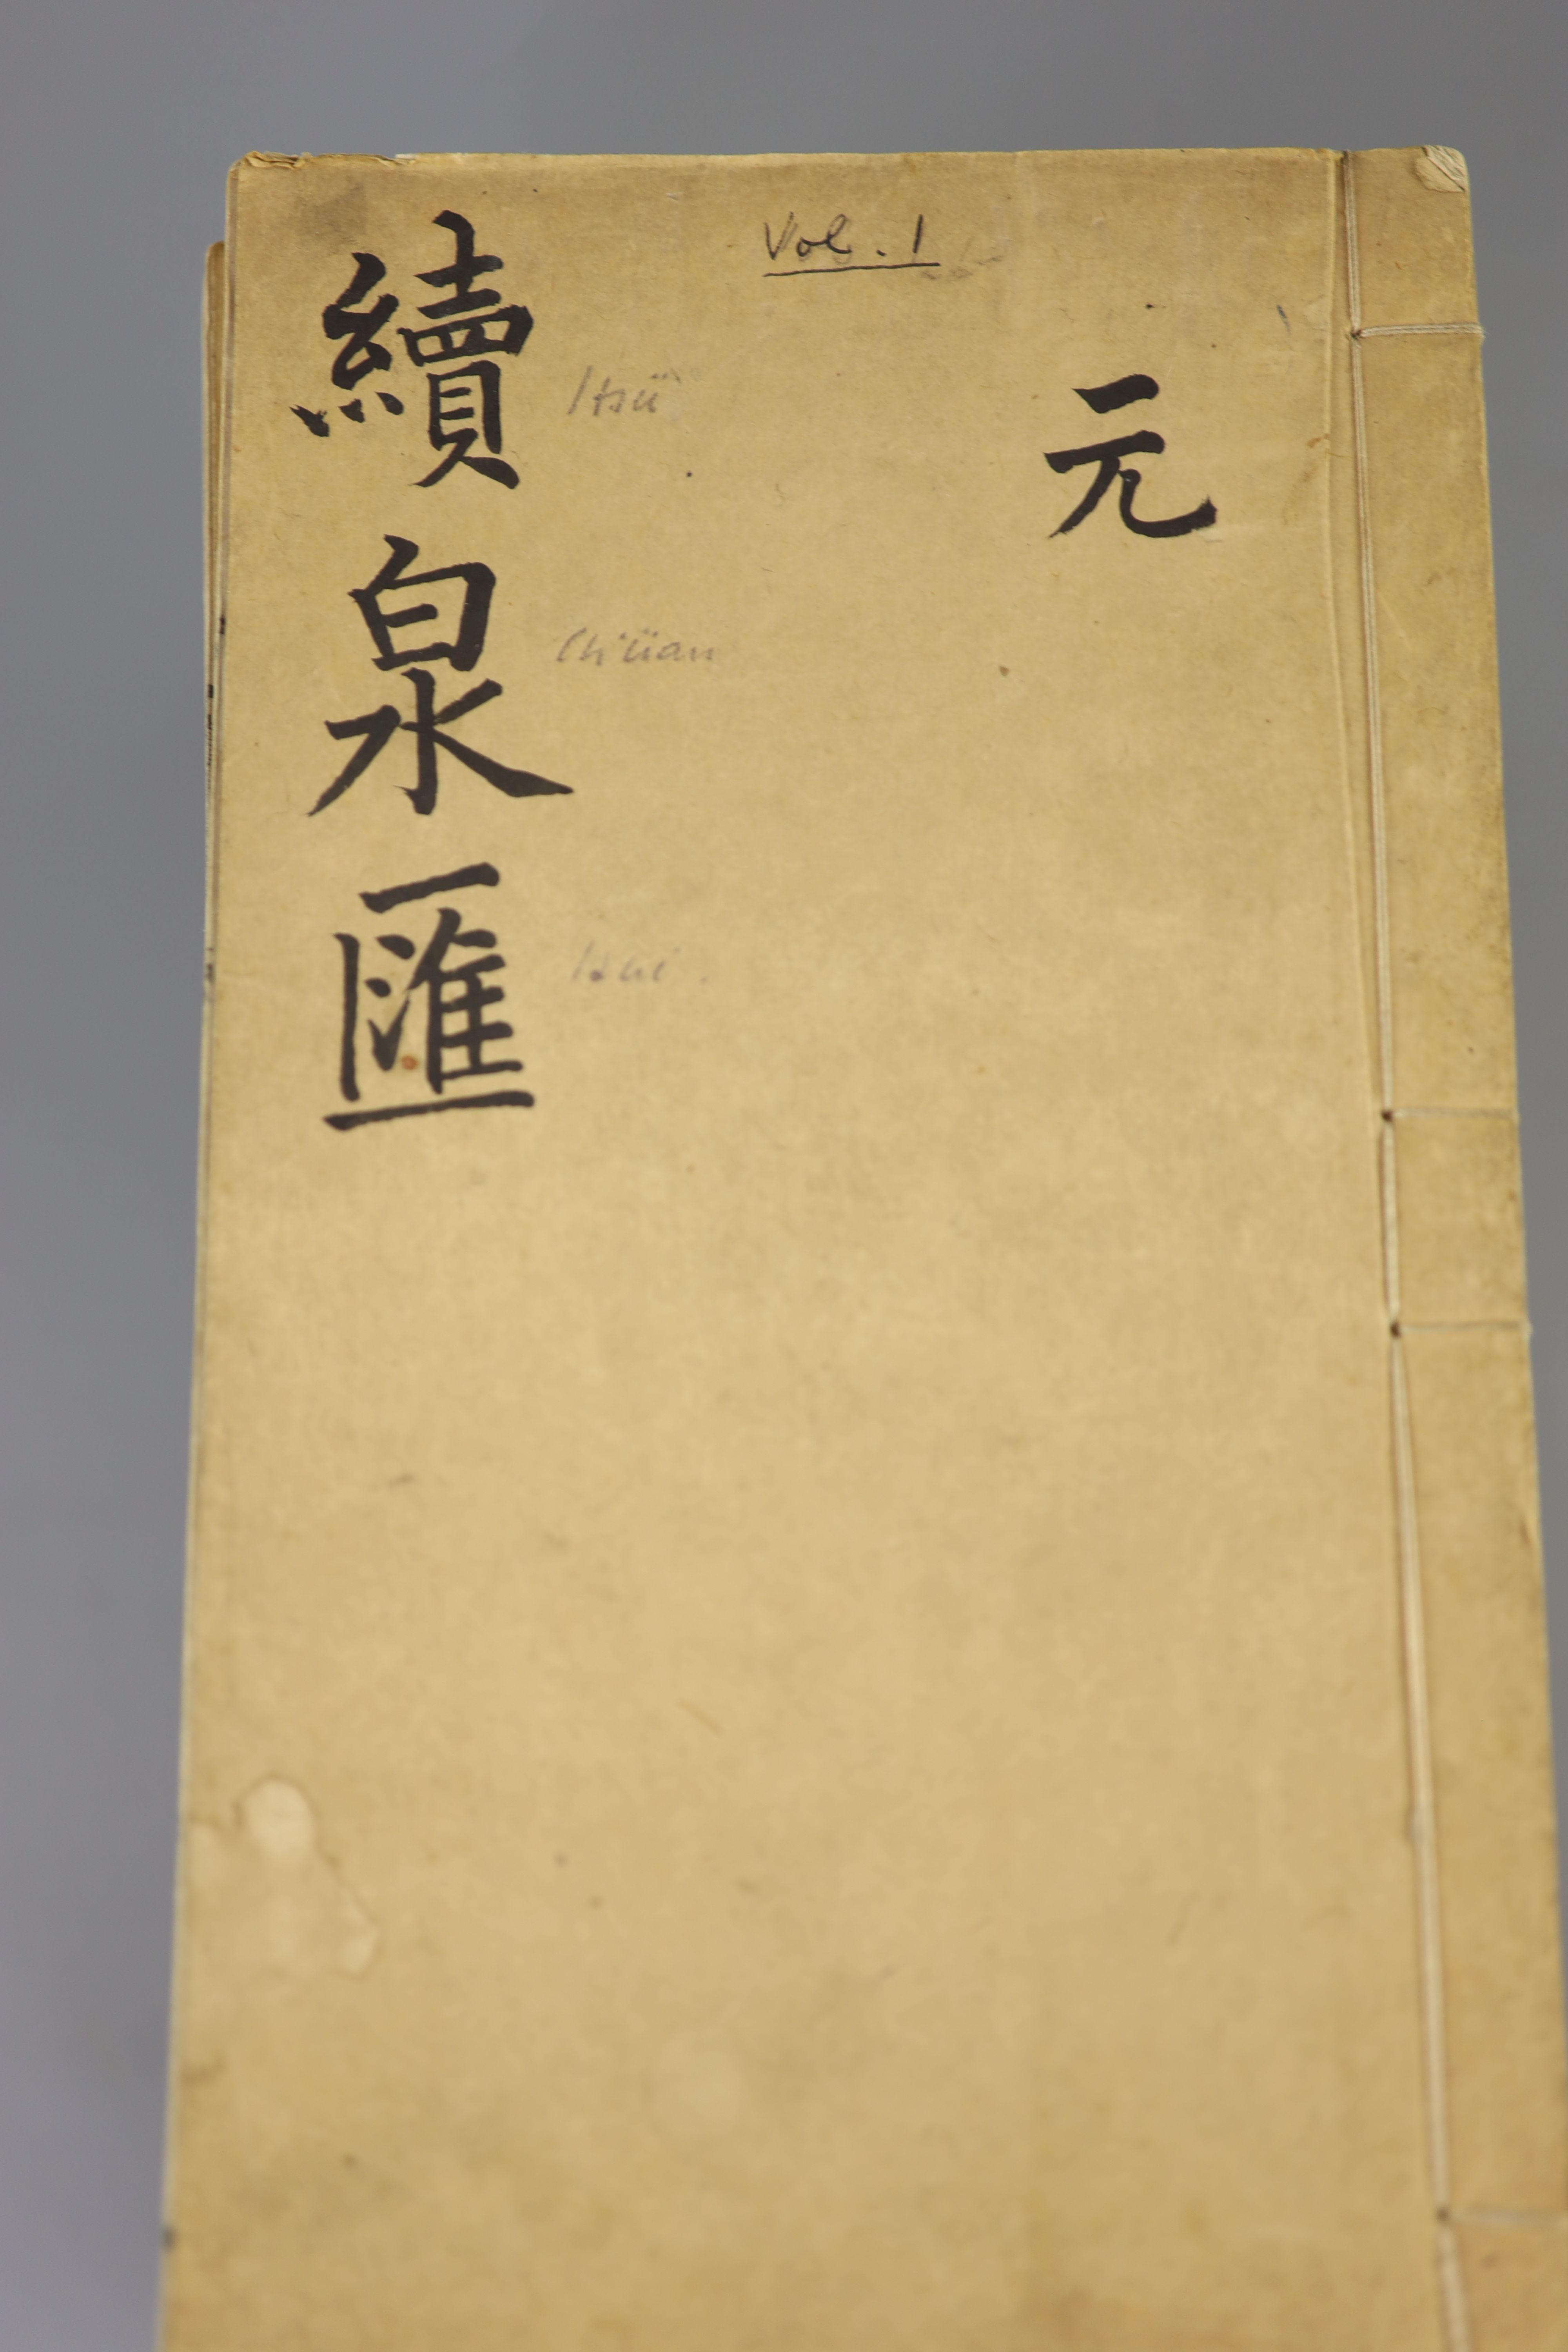 Vol. 1
元
續泉匯
Hsü
Ch'üan